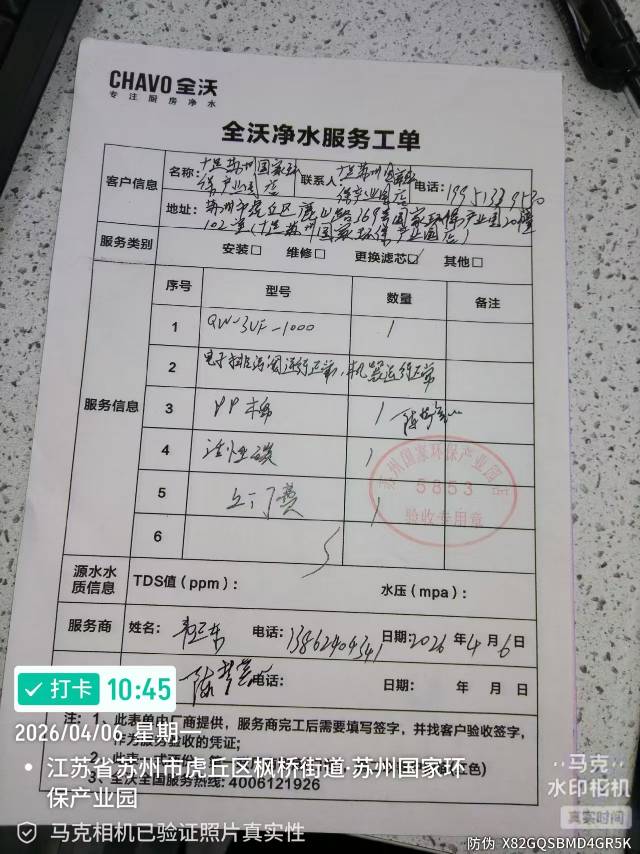 CHAVO 全沃
专注厨房净水
全沃净水服务工单
客户信息
名称：十足苏州国家环保产业园店
联系人：十足苏州国家环保产业园店
电话：19951339530
地址：苏州市虎丘区鹿山路369号国家环保产业园20幢
102室（十足苏州国家环保产业园店）
服务类别 安装□ 维修□ 更换滤芯☑ 其他□
服务信息
序号 型号 数量 备注
1 QW-3UF-1000 1
2 电子排污阀运行正常，机器运行正常
3 PP棉 1
4 活性碳 1
5 上门费 1
6
苏州国家环保产业园店
5853
验收专用章
源水水质信息 TDS值（ppm）： 水压（mpa）：
服务商 姓名： 电话：13862404341 日期：2026 年 4 月 6 日
电话： 日期： 年 月 日
注：1、此表单由厂商提供，服务商完工后需要填写签字，并找客户验收签字，
作为服务验收的凭证；
2、
3、全沃全国服务热线：4006121926
打卡 10:45
2026/04/06 星期一
江苏省苏州市虎丘区枫桥街道·苏州国家环
保产业园
马克相机已验证照片真实性
马克
水印相机
真实时间
防伪 X82GQSBMD4GR5K